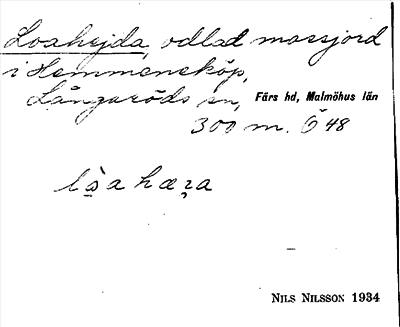 Loahejda, odlad mossjord
i Hemmeneköp,
Långaröds sn, Färs hd, Malmöhus län
300 m. Ö 48
lòa hæra
NILS NILSSON 1934